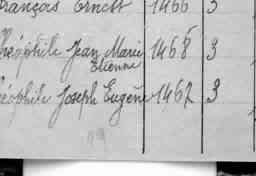 François Ernest 1466 3
Théophile Jean Marie 1468 3
Etienne
Théophile Joseph Eugène 1467 3